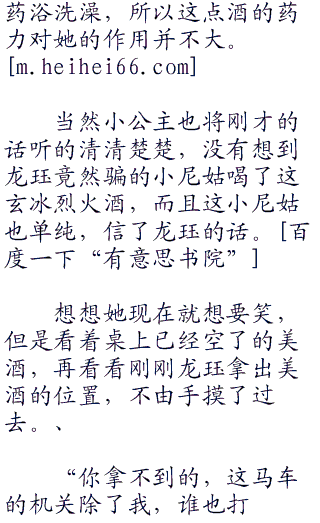 药浴洗澡，所以这点酒的药
力对她的作用并不大。
[m.heihei66.com]
当然小公主也将刚才的
话听的清清楚楚，没有想到
龙珏竟然骗的小尼姑喝了这
玄冰烈火酒，而且这小尼姑
也单纯，信了龙珏的话。[百
度一下“有意思书院”]
想想她现在就想要笑，
但是看着桌上已经空了的美
酒，再看看刚刚龙珏拿出美
酒的位置，不由手摸了过
去。、
“你拿不到的，这马车
的机关除了我，谁也打